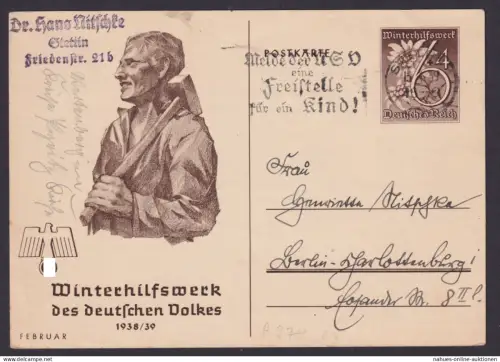 Dr. Hans Nitschke
Stettin
Friedenstr. 21b
POSTKARTE
Melde der NSV
eine
Freistelle
für ein Kind!
Winterhilfswerk
6+4
Deutsches Reich
Frau
Henrietta Nitschke
Berlin-Charlottenburg
Eosander Str. 8 II
Winterhilfswerk
des deutschen Volkes
1938/39
FEBRUAR
nahues-online-auctions.com